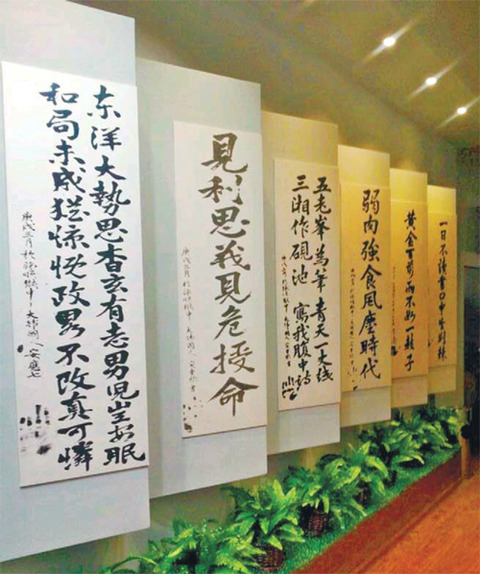 东洋大勢思杳玄有志男児豈安眠
和局未成猶慷慨政略不改真可憐
庚戌三月 於旅順獄中 大韓國人 安重根
見利思義見危授命
庚戌三月 於旅順獄中 大韓國人 安重根書
五老峯為筆 青天一丈紙
三湘作硯池 寫我腹中詩
弱肉強食風塵時代
黃金百萬而不如一教子
一日不讀書口中生荊棘